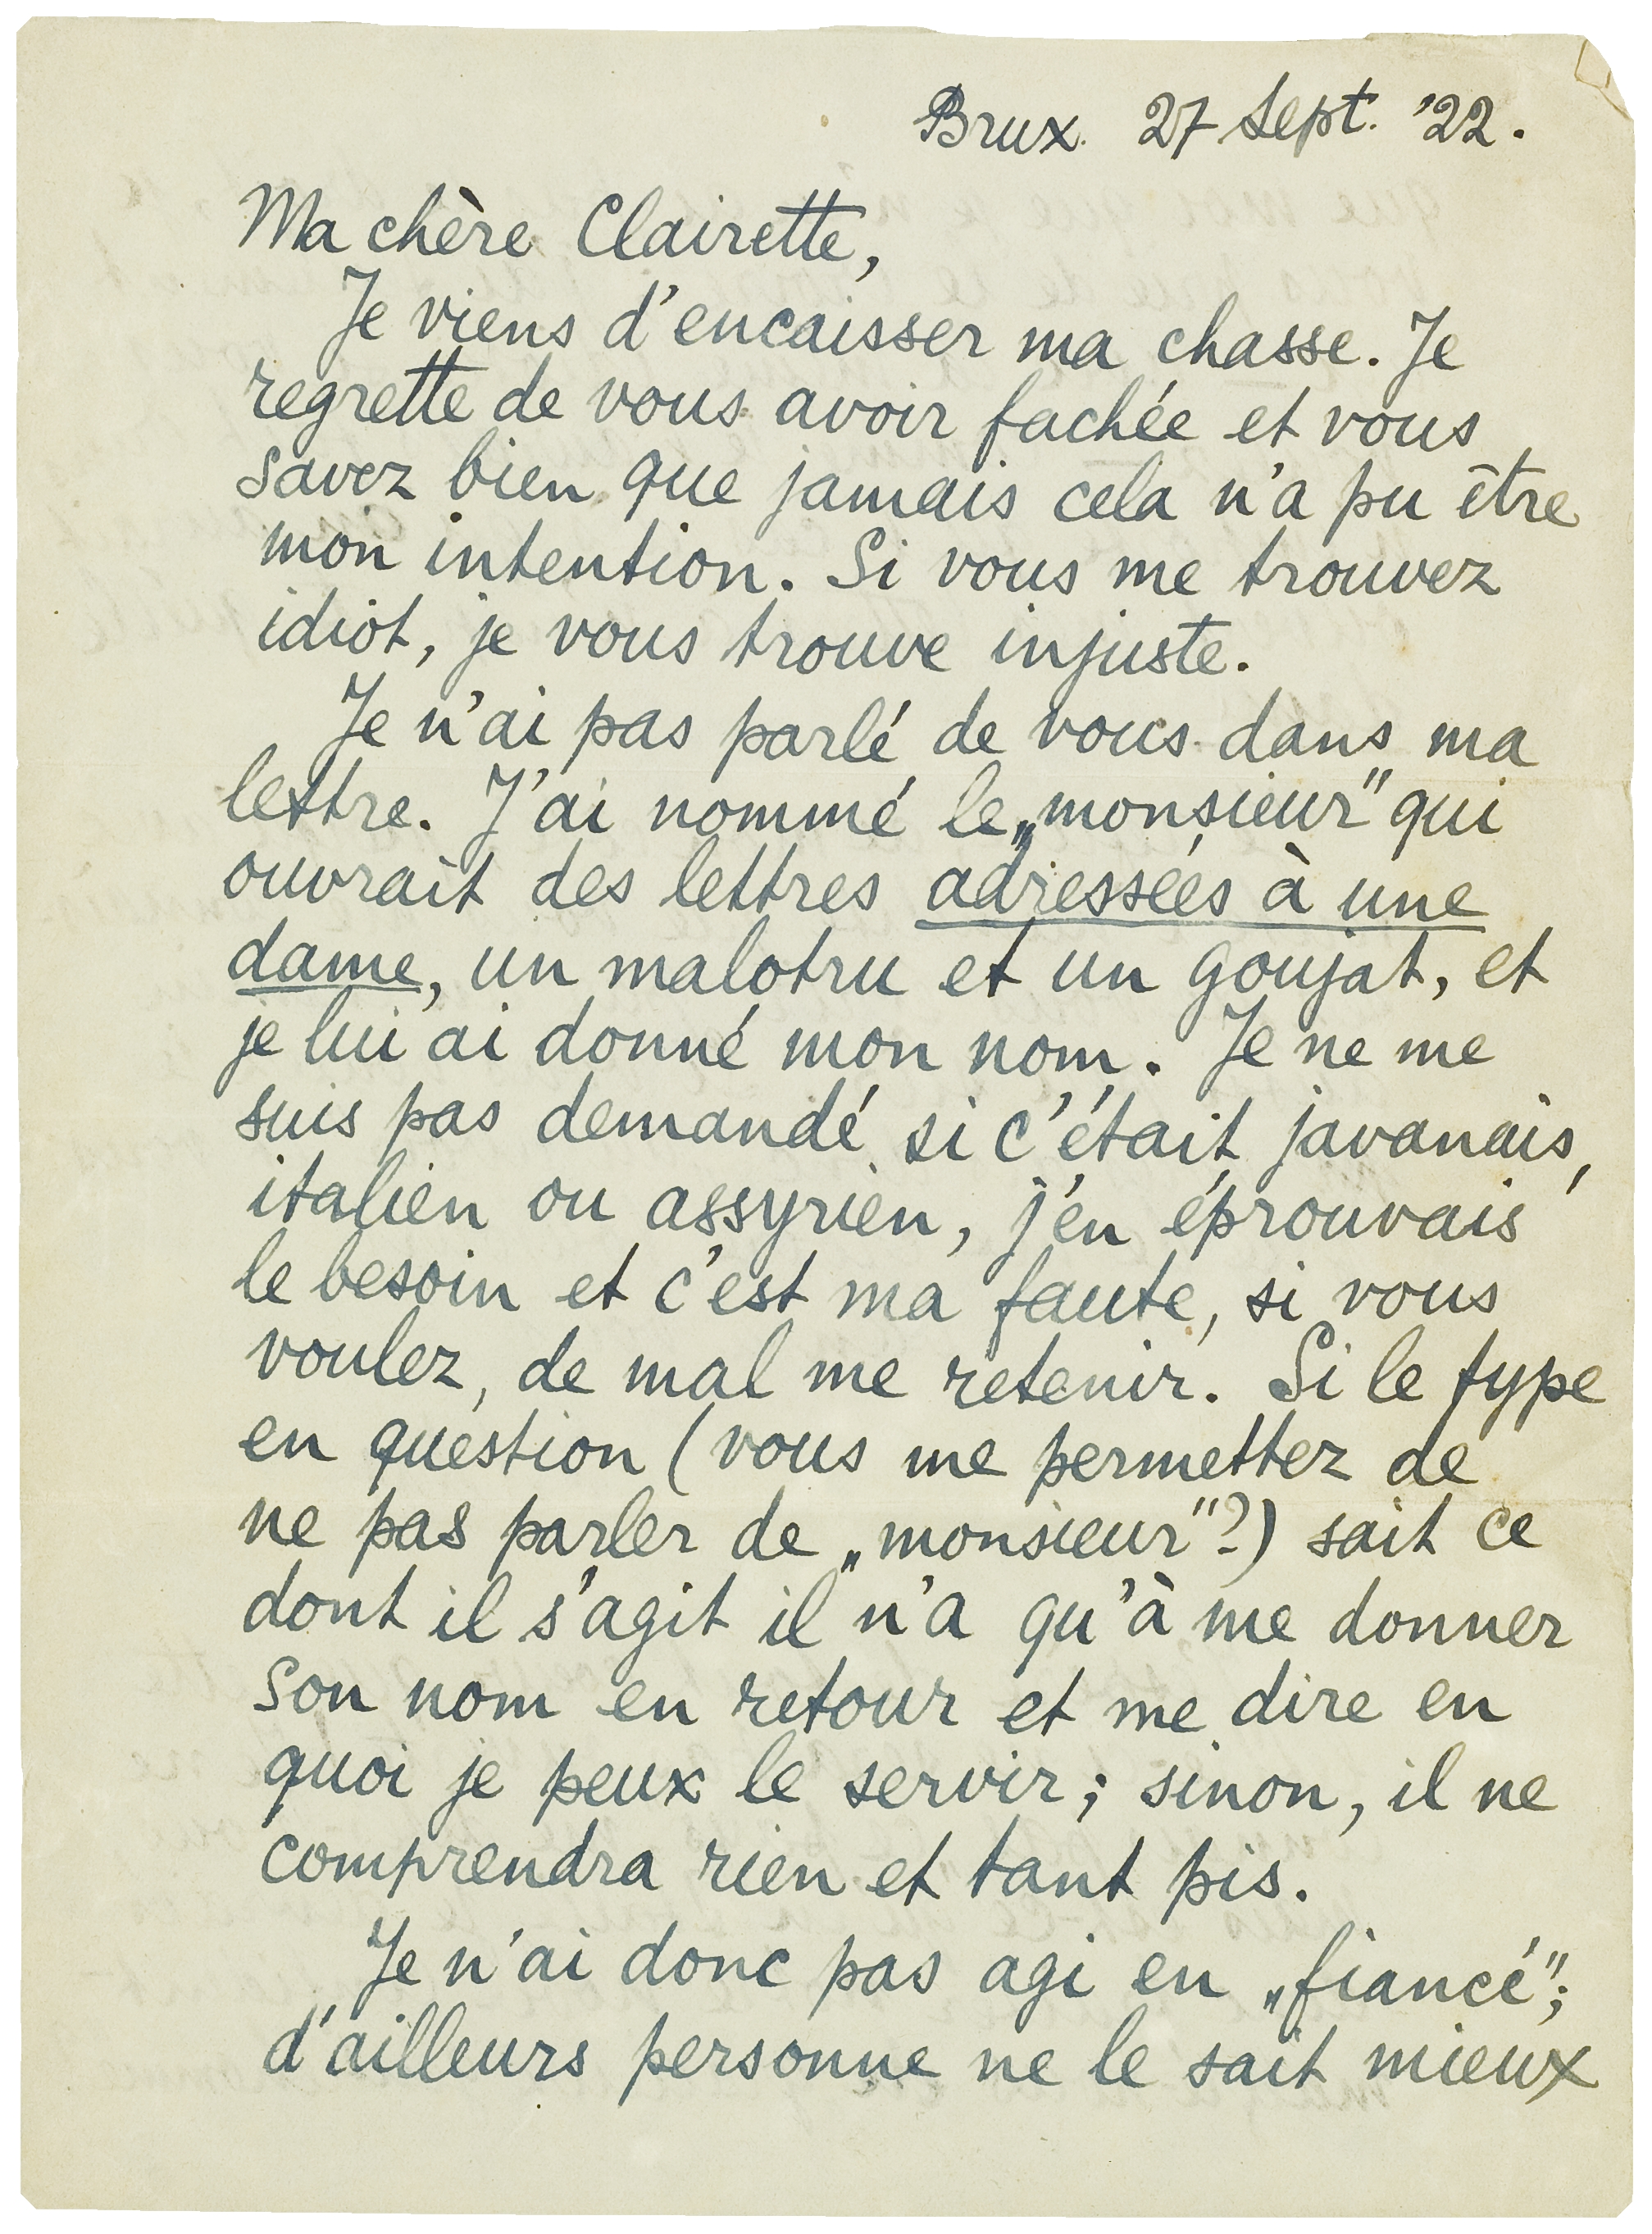 Brux. 27 Sept. '22.
Ma chère Clairette,
Je viens d'encaisser ma chasse. Je
regrette de vous avoir fachée et vous
savez bien que jamais cela n'a pu être
mon intention. Si vous me trouvez
idiot, je vous trouve injuste.
Je n'ai pas parlé de vous dans ma
lettre. J'ai nommé le „monsieur" qui
ouvrait des lettres adressées à une
dame, un malotru et un goujat, et
je lui ai donné mon nom. Je ne me
suis pas demandé si c'était javanais,
italien ou assyrien, j'en éprouvais
le besoin et c'est ma faute, si vous
voulez, de mal me retenir. Si le type
en question (vous me permettez de
ne pas parler de „monsieur"?) sait ce
dont il s'agit il n'a qu'à me donner
son nom en retour et me dire en
quoi je peux le servir; sinon, il ne
comprendra rien et tant pis.
Je n'ai donc pas agi en „fiancé";
d'ailleurs personne ne le sait mieux